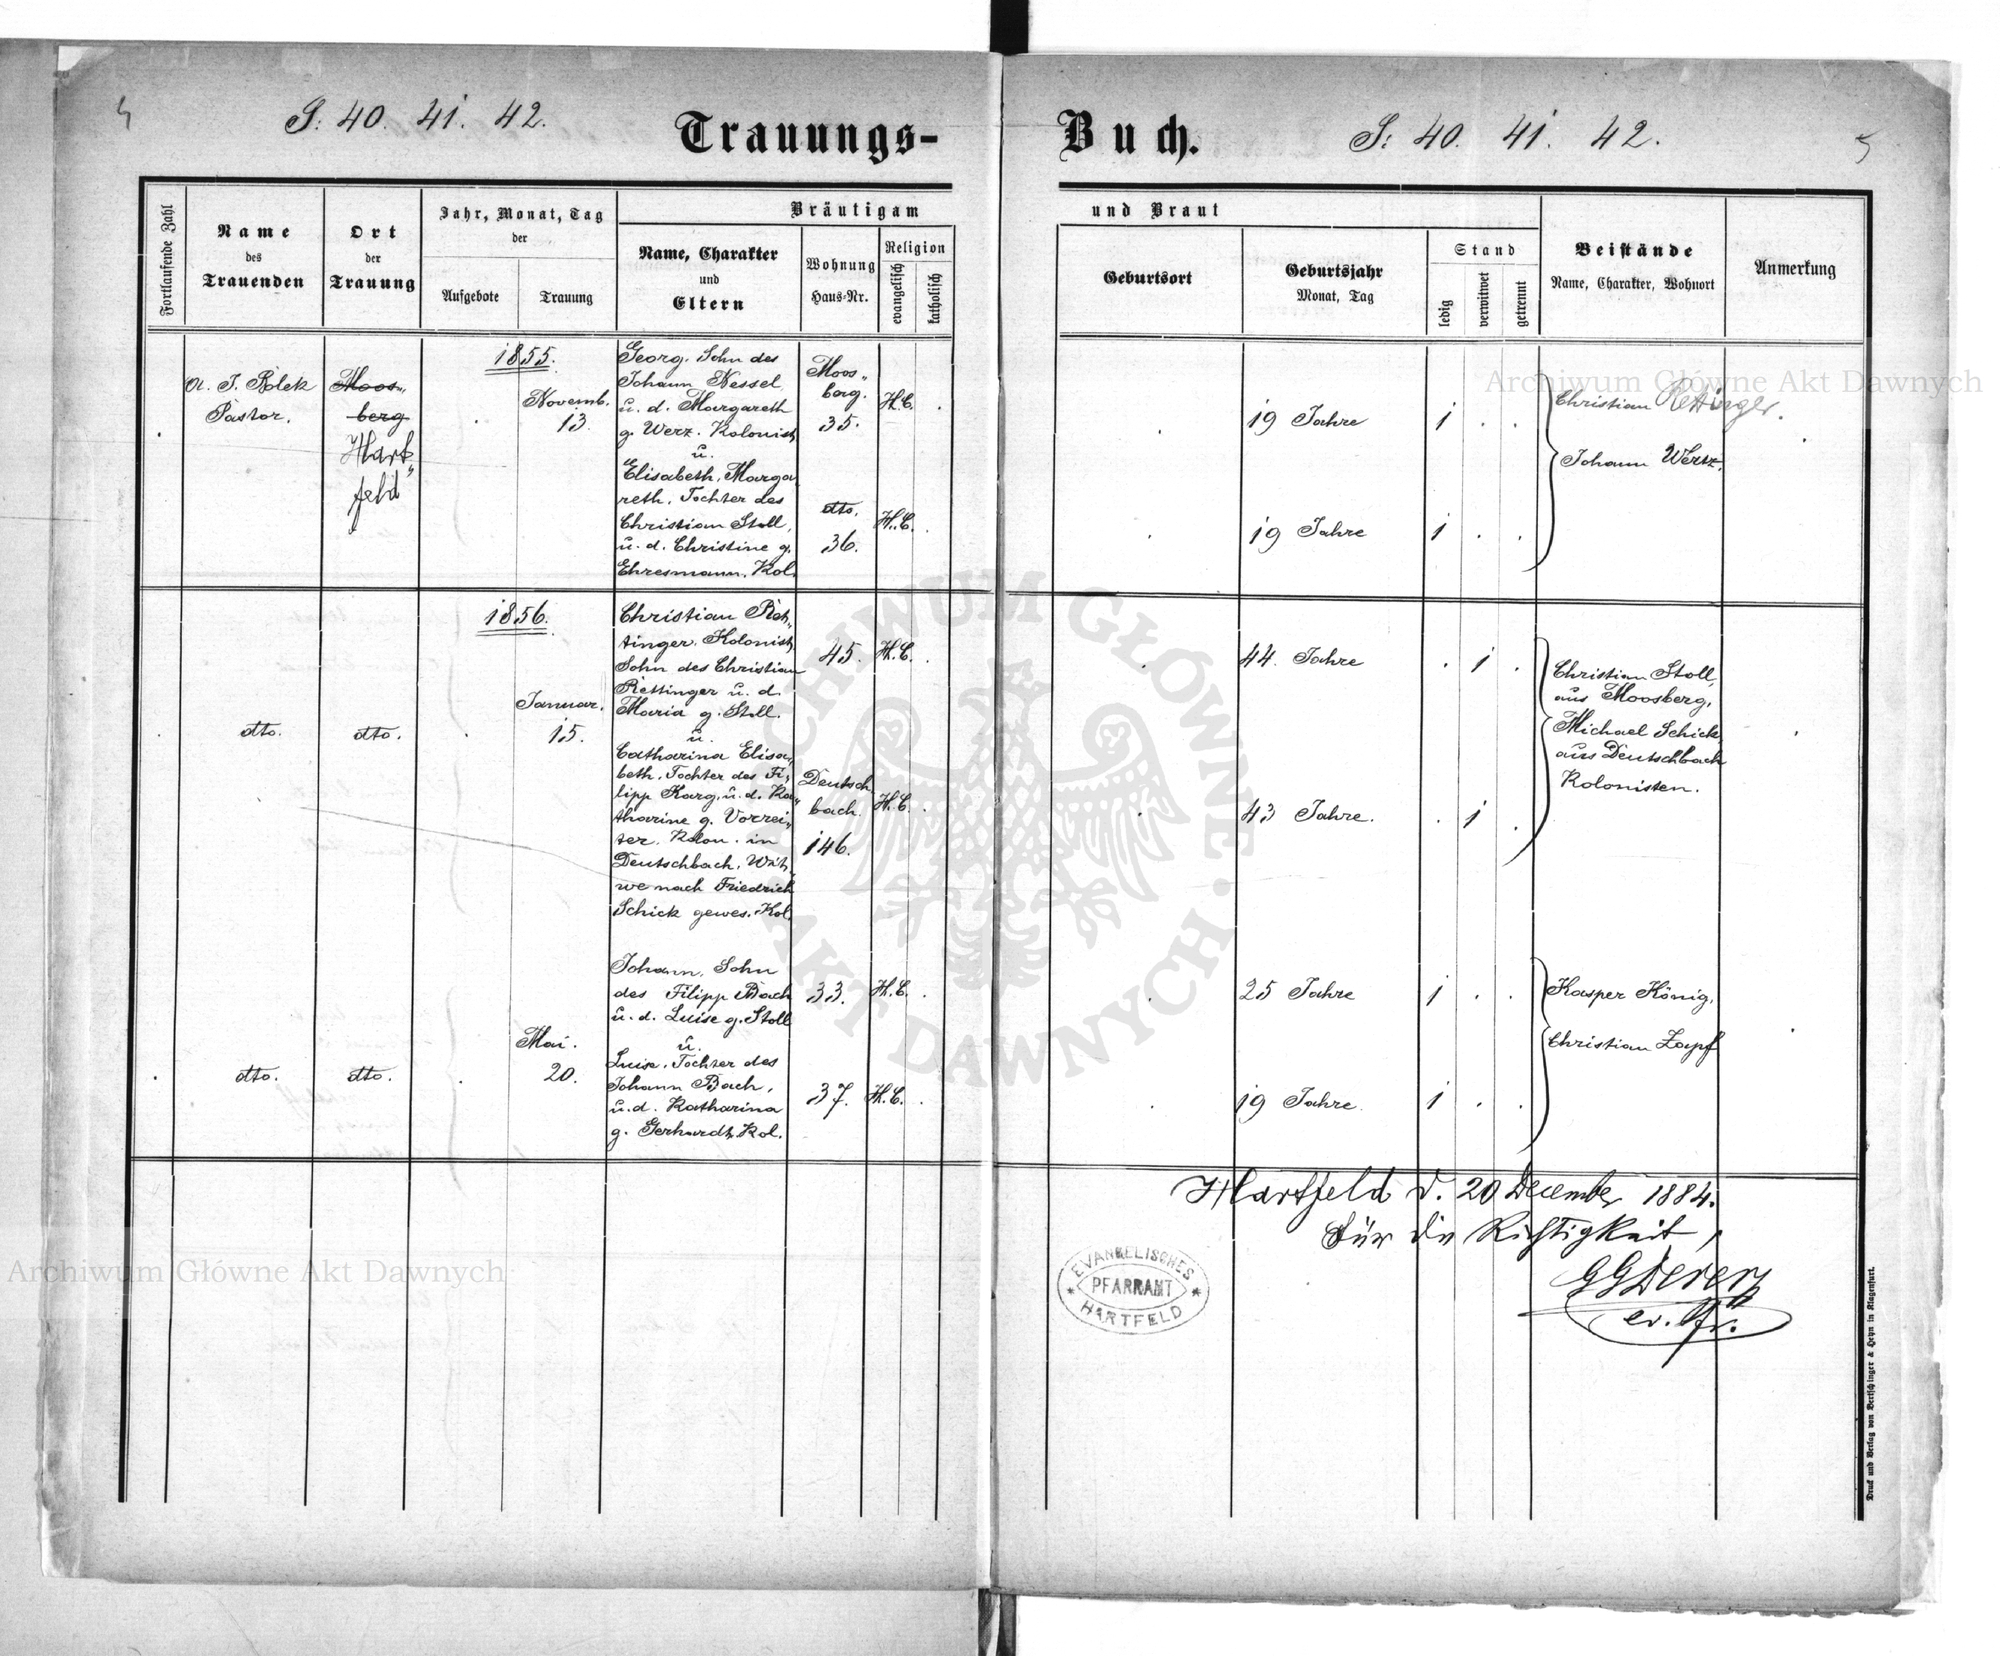 S: 40. 41. 42.
Trauungs-
Buch.
S: 40. 41. 42.
5
Fortlaufende Zahl
Name
des
Trauenden
Ort
der
Trauung
Jahr, Monat, Tag
der
Aufgebote
Trauung
Bräutigam
Name, Charakter
und
Eltern
Wohnung
Haus-Nr.
Religion
evangelisch
katholisch
und Braut
Geburtsort
Geburtsjahr
Monat, Tag
Stand
ledig
verwitwet
getrennt
Beistände
Name, Charakter, Wohnort
Anmerkung
1855.
Pastor.
Moos„
berg
Hart„
feld
Novemb.
13.
Georg. Sohn des
Johann Nessel
u. d. Margareth
g. Werz. Kolonist
u.
Elisabeth, Marga
reth. Tochter des
Christian Stoll,
u. d. Christine g.
Ehresmann. Kol.
Moos„
berg.
35.
dto.
36.
H.C.
H.C.
19 Jahre
1
19 Jahre
1
Christian Rettinger.
Johann Werz.
1856.
dto.
dto.
Januar.
15.
Christian Ret„
tinger. Kolonist,
Sohn des Christian
Rettinger u. d.
Maria g. Stoll.
u.
Catharina Elisa„
beth. Tochter des Fi„
lipp Karg, u. d. Ka„
tharine g. Vorrei„
ter. Kolon. in
Deutschbach. Wit„
we nach Friedrich
Schick gewes. Kol.
45.
Deutsch
bach.
146.
H.C.
H.C.
44. Jahre
1
43 Jahre.
1
Christian Stoll,
aus Moosberg.
Michael Schick
aus Deutschbach
Kolonisten.
dto.
dto.
Mai.
20.
Johann, Sohn
des Filipp Bach
u. d. Luise g. Stoll
u.
Luise. Tochter des
Johann Bach,
u. d. Katharina
g. Gerhardt. Kol.
33.
37.
H.C.
H.C.
25 Jahre
1
19 Jahre.
1
Kasper König.
Christian Zapf
Hartfeld d. 20 December 1884.
Für die Richtigkeit,
ev. Pfr.
EVANGELISCHES
PFARRAMT
HARTFELD
Druck und Verlag von Bertschinger & Heyn in Klagenfurt.
Archiwum Główne Akt Dawnych
Archiwum Główne Akt Dawnych
ARCHIWUM GŁÓWNE
AKT DAWNYCH